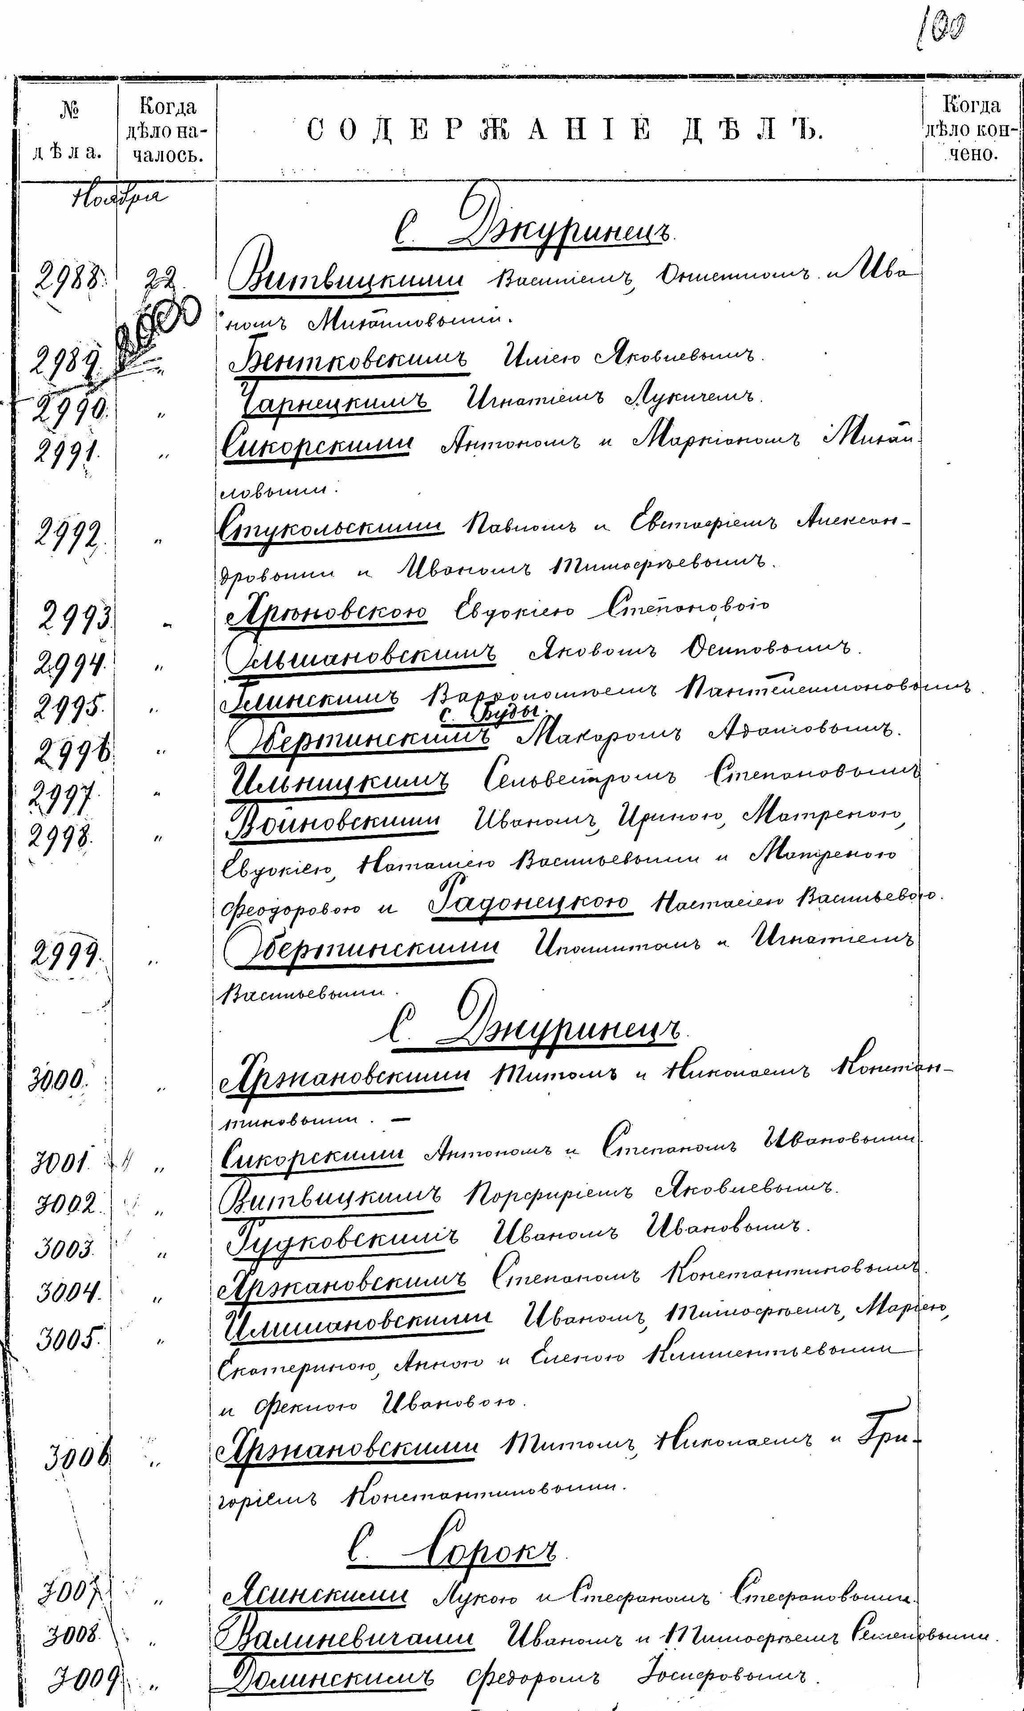 100
№ дѣла.
Когда дѣло началось.
СОДЕРЖАНІЕ ДѢЛЪ.
Когда дѣло кончено.
Ноября
С. Джуринецъ.
2988. 22. Витвицкими Василіемъ, и Ива
номъ Михайловыми.
2989. " Бентковскимъ Ильею Яковлевымъ.
2990. " Чарнецкимъ Игнатіемъ Лукичемъ.
2991. " Сикорскими Антономъ и Маркіаномъ Михай
ловыми.
2992. " Стукольскими Павломъ и Евстафіемъ Алексан-
дровыми и Иваномъ Тимофѣевымъ.
2993. " Евдокіею Степановою
2994. " Ольшановскимъ Яковомъ Осиповымъ.
2995. " Глинскимъ Варѳоломѣемъ Пантелеимоновымъ.
с. Буды.
2996. " Обертинскимъ Макаромъ Адамовымъ.
2997. " Ильницкимъ Сельвестромъ Степановымъ
2998. " Войновскими Иваномъ, Ириною, Матреною,
Евдокіею, Наталіею Васильевыми и Матреною
Феодоровою и Радонецкою Настасіею Васильевою.
2999. " Обертинскими Иполитомъ и Игнатіемъ
Васильевыми.
С. Джуринецъ.
3000. " Аржановскими Титомъ и Николаемъ Констан-
тиновыми. —
3001. " Сикорскими Антономъ и Степаномъ Ивановыми.
3002. " Витвицкимъ Порфиріемъ Яковлевымъ.
3003. " Гудковскимъ Иваномъ Ивановымъ.
3004. " Аржановскимъ Степаномъ Константиновымъ.
3005. " Иваномъ, Тимофѣемъ, Маріею,
Екатериною, Анною и Еленою Климентьевыми
и Феклою Ивановою.
3006 " Аржановскими Титомъ, Николаемъ и Гри-
горіемъ Константиновыми.
С. Сорокъ.
3007 " Ясинскими Лукою и Стефаномъ Стефановыми.
3008. " Валиневичами Иваномъ и Тимофѣемъ Семеновыми.
3009 " Долинскимъ Федоромъ Іосифовымъ.